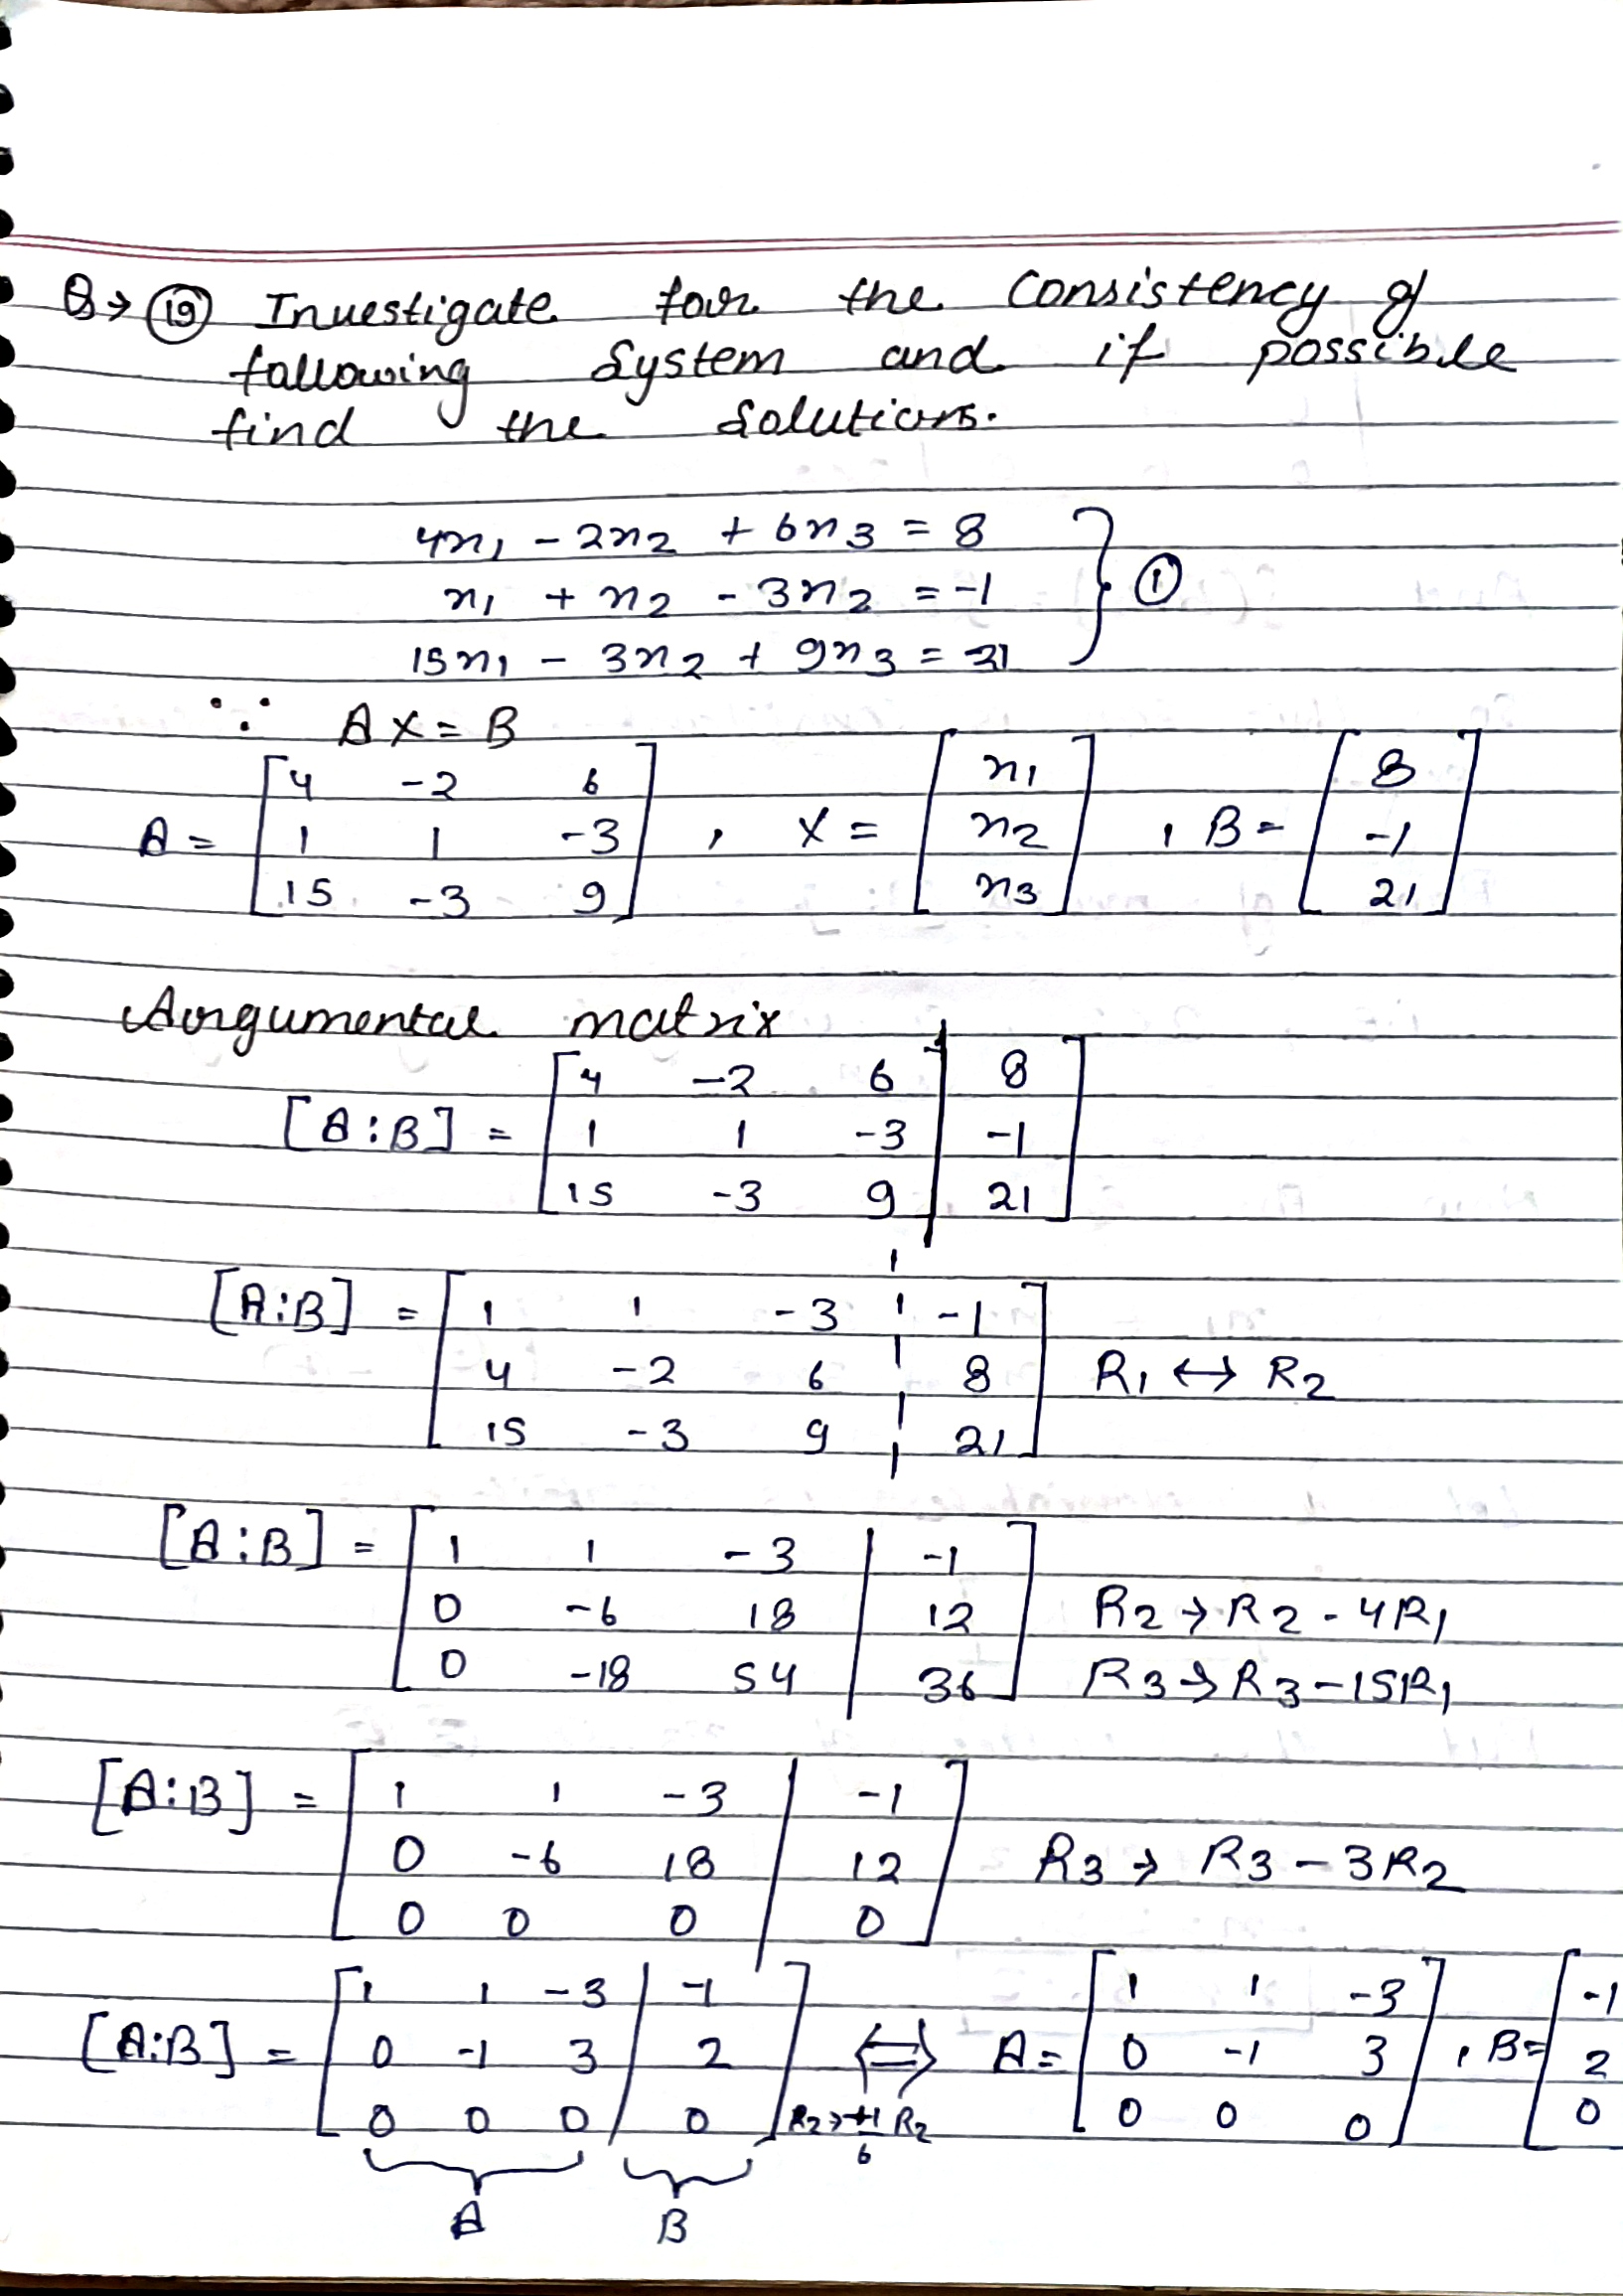 Q → ⑲ Investigate for the Consistency of
following System and if possible
find the Solutions.
4x₁ - 2x₂ + 6x₃ = 8
x₁ + x₂ - 3x₂ = -1 } ①
15x₁ - 3x₂ + 9x₃ = 21
∵ AX = B
A = [4 -2 6; 1 1 -3; 15 -3 9], X = [x₁; x₂; x₃], B = [8; -1; 21]
Aurgumental matrix
[A:B] = [4 -2 6 | 8; 1 1 -3 | -1; 15 -3 9 | 21]
[A:B] = [1 1 -3 | -1; 4 -2 6 | 8; 15 -3 9 | 21] R₁ ↔ R₂
[A:B] = [1 1 -3 | -1; 0 -6 18 | 12; 0 -18 54 | 36] R₂ → R₂ - 4R₁ R₃ → R₃ - 15R₁
[A:B] = [1 1 -3 | -1; 0 -6 18 | 12; 0 0 0 | 0] R₃ → R₃ - 3R₂
[A:B] = [1 1 -3 | -1; 0 -1 3 | 2; 0 0 0 | 0] R₂ → +1/6 R₂ ⟺ A = [1 1 -3; 0 -1 3; 0 0 0], B = [-1; 2; 0]
A B